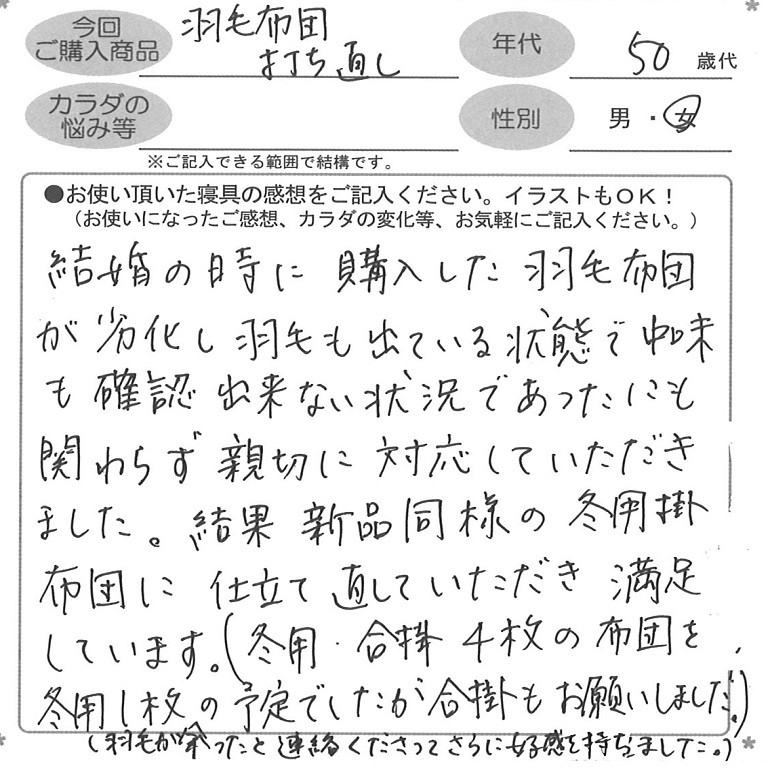 今回
ご購入商品
羽毛布団
打ち直し
年代
50 歳代
カラダの
悩み等
性別
男・女
※ご記入できる範囲で結構です。
●お使い頂いた寝具の感想をご記入ください。イラストもOK！
（お使いになったご感想、カラダの変化等、お気軽にご記入ください。）
結婚の時に 購入した 羽毛布団
が劣化し羽毛も出ている状態で中味
も確認出来ない状況であったにも
関わらず親切に対応していただき
ました。結果 新品同様の冬用掛
布団に 仕立て直していただき 満足
しています。(冬用・合掛 4枚の布団を
冬用1枚の予定でしたが合掛もお願いしました。)
(羽毛が余ったと連絡くださってさらに好感を持ちました。)